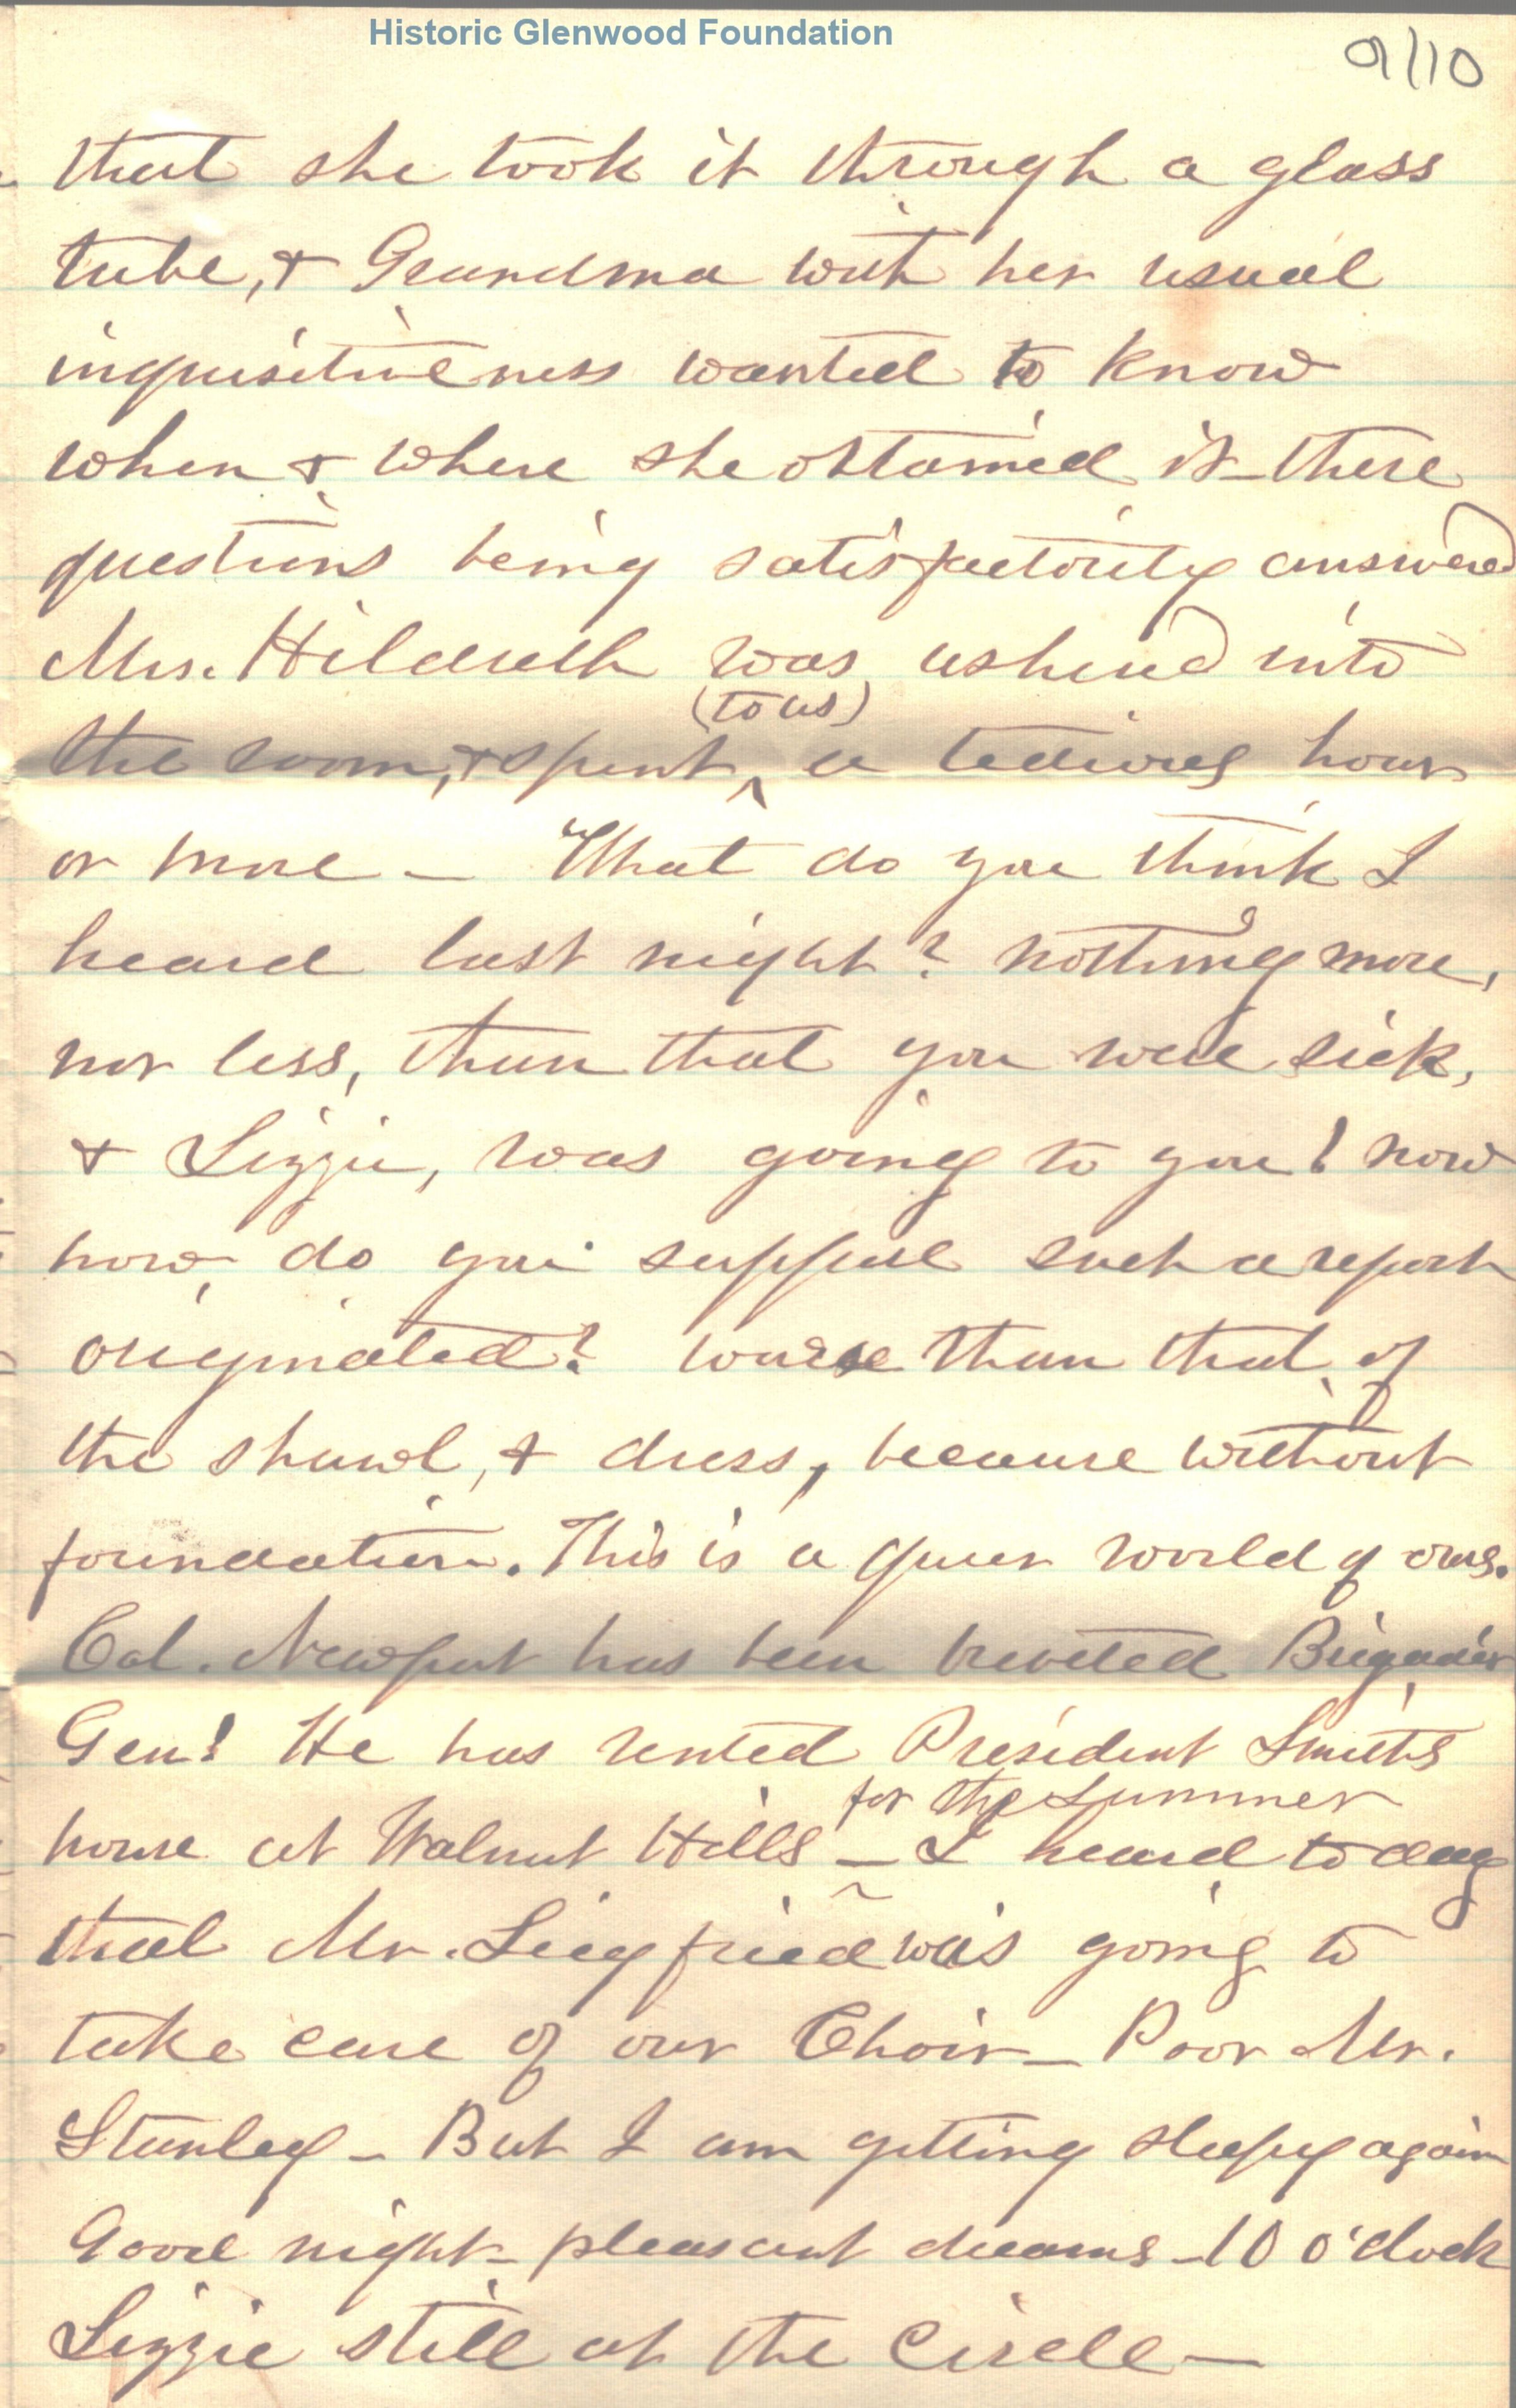 Historic Glenwood Foundation
9/10
that she took it through a glass
tube, & Grandma with her usual
inquisitiveness wanted to know
when & where she obtained it - these
questions being satisfactorily answered
Mrs. Hildreth was ushered into
(to us)
the room, & spent a tedious hour
or more - What do you think I
heard last night? nothing more,
nor less, than that you were sick,
& Lizzie, was going to you! now
how do you suppose such a report
originated? worse than that of
the shawl, & dress, because without
foundation. This is a queer world of ours.
Col. Newport has been breveted Brigadier
Gen! He has rented President Smith's
for the summer
house at Walnut Hills - I heard to day
that Mr. Siegfried was going to
take care of our Choir - Poor Mr.
Stanley - But I am getting sleepy again
Good night - pleasant dreams - 10 o'clock
Lizzie still at the Circle -